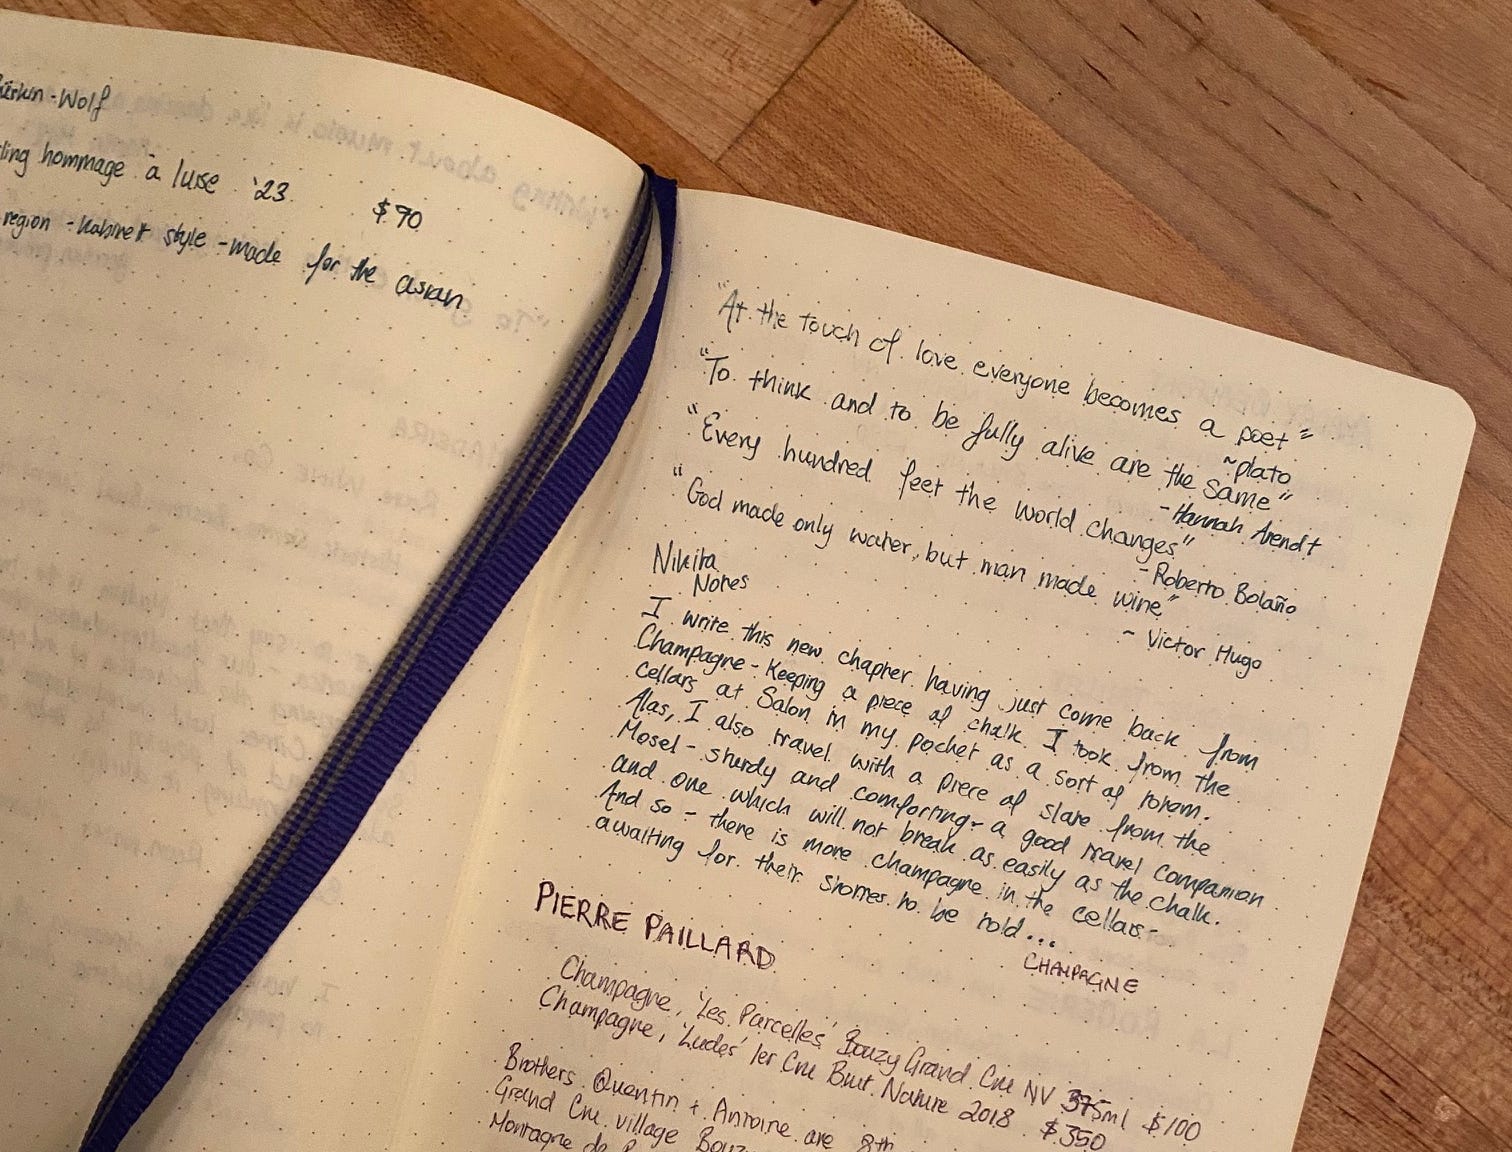 Wolf
hommage à luise '23 $70
region - Kabinett style - made for the asian
"At the touch of love everyone becomes a poet"
~plato
"To think and to be fully alive are the same"
- Hannah Arendt
"Every hundred feet the world changes"
- Roberto Bolaño
"God made only water, but man made wine"
~ Victor Hugo
Nikita
Notes
I write this new chapter having just come back from
Champagne - Keeping a piece of chalk I took from the
cellars at Salon in my pocket as a sort of totem.
Alas, I also travel with a piece of slate from the
Mosel - sturdy and comforting - a good travel companion
and one which will not break as easily as the chalk.
And so - there is more champagne in the cellars -
awaiting for their stories to be told...
PIERRE PAILLARD
CHAMPAGNE
Champagne, 'Les Parcelles' Bouzy Grand Cru NV 375ml $100
Champagne, 'Ludes' 1er Cru Brut Nature 2018 $350
Brothers Quentin + Antoine are 8th
Grand Cru village
Montagne de